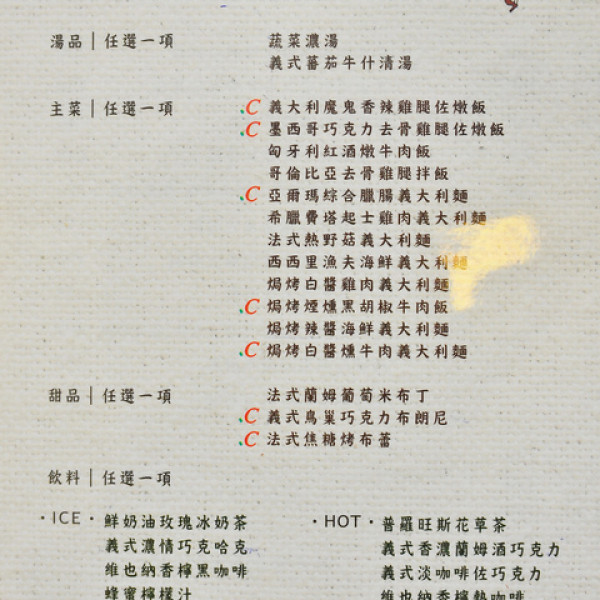 湯品｜任選一項
蔬菜濃湯
義式蕃茄牛什清湯
主菜｜任選一項
C 義大利魔鬼香辣雞腿佐燉飯
C 墨西哥巧克力去骨雞腿佐燉飯
匈牙利紅酒燉牛肉飯
哥倫比亞去骨雞腿拌飯
C 亞爾瑪綜合臘腸義大利麵
希臘費塔起士雞肉義大利麵
法式熱野菇義大利麵
西西里漁夫海鮮義大利麵
焗烤白醬雞肉義大利麵
C 焗烤煙燻黑胡椒牛肉飯
焗烤辣醬海鮮義大利麵
C 焗烤白醬燻牛肉義大利麵
甜品｜任選一項
法式蘭姆葡萄米布丁
C 義式鳥巢巧克力布朗尼
C 法式焦糖烤布蕾
飲料｜任選一項
·ICE·
鮮奶油玫瑰冰奶茶
義式濃情巧克哈克
維也納香檸黑咖啡
蜂蜜檸檬汁
·HOT·
普羅旺斯花草茶
義式香濃蘭姆酒巧克力
義式淡咖啡佐巧克力
維也納香檸熱咖啡